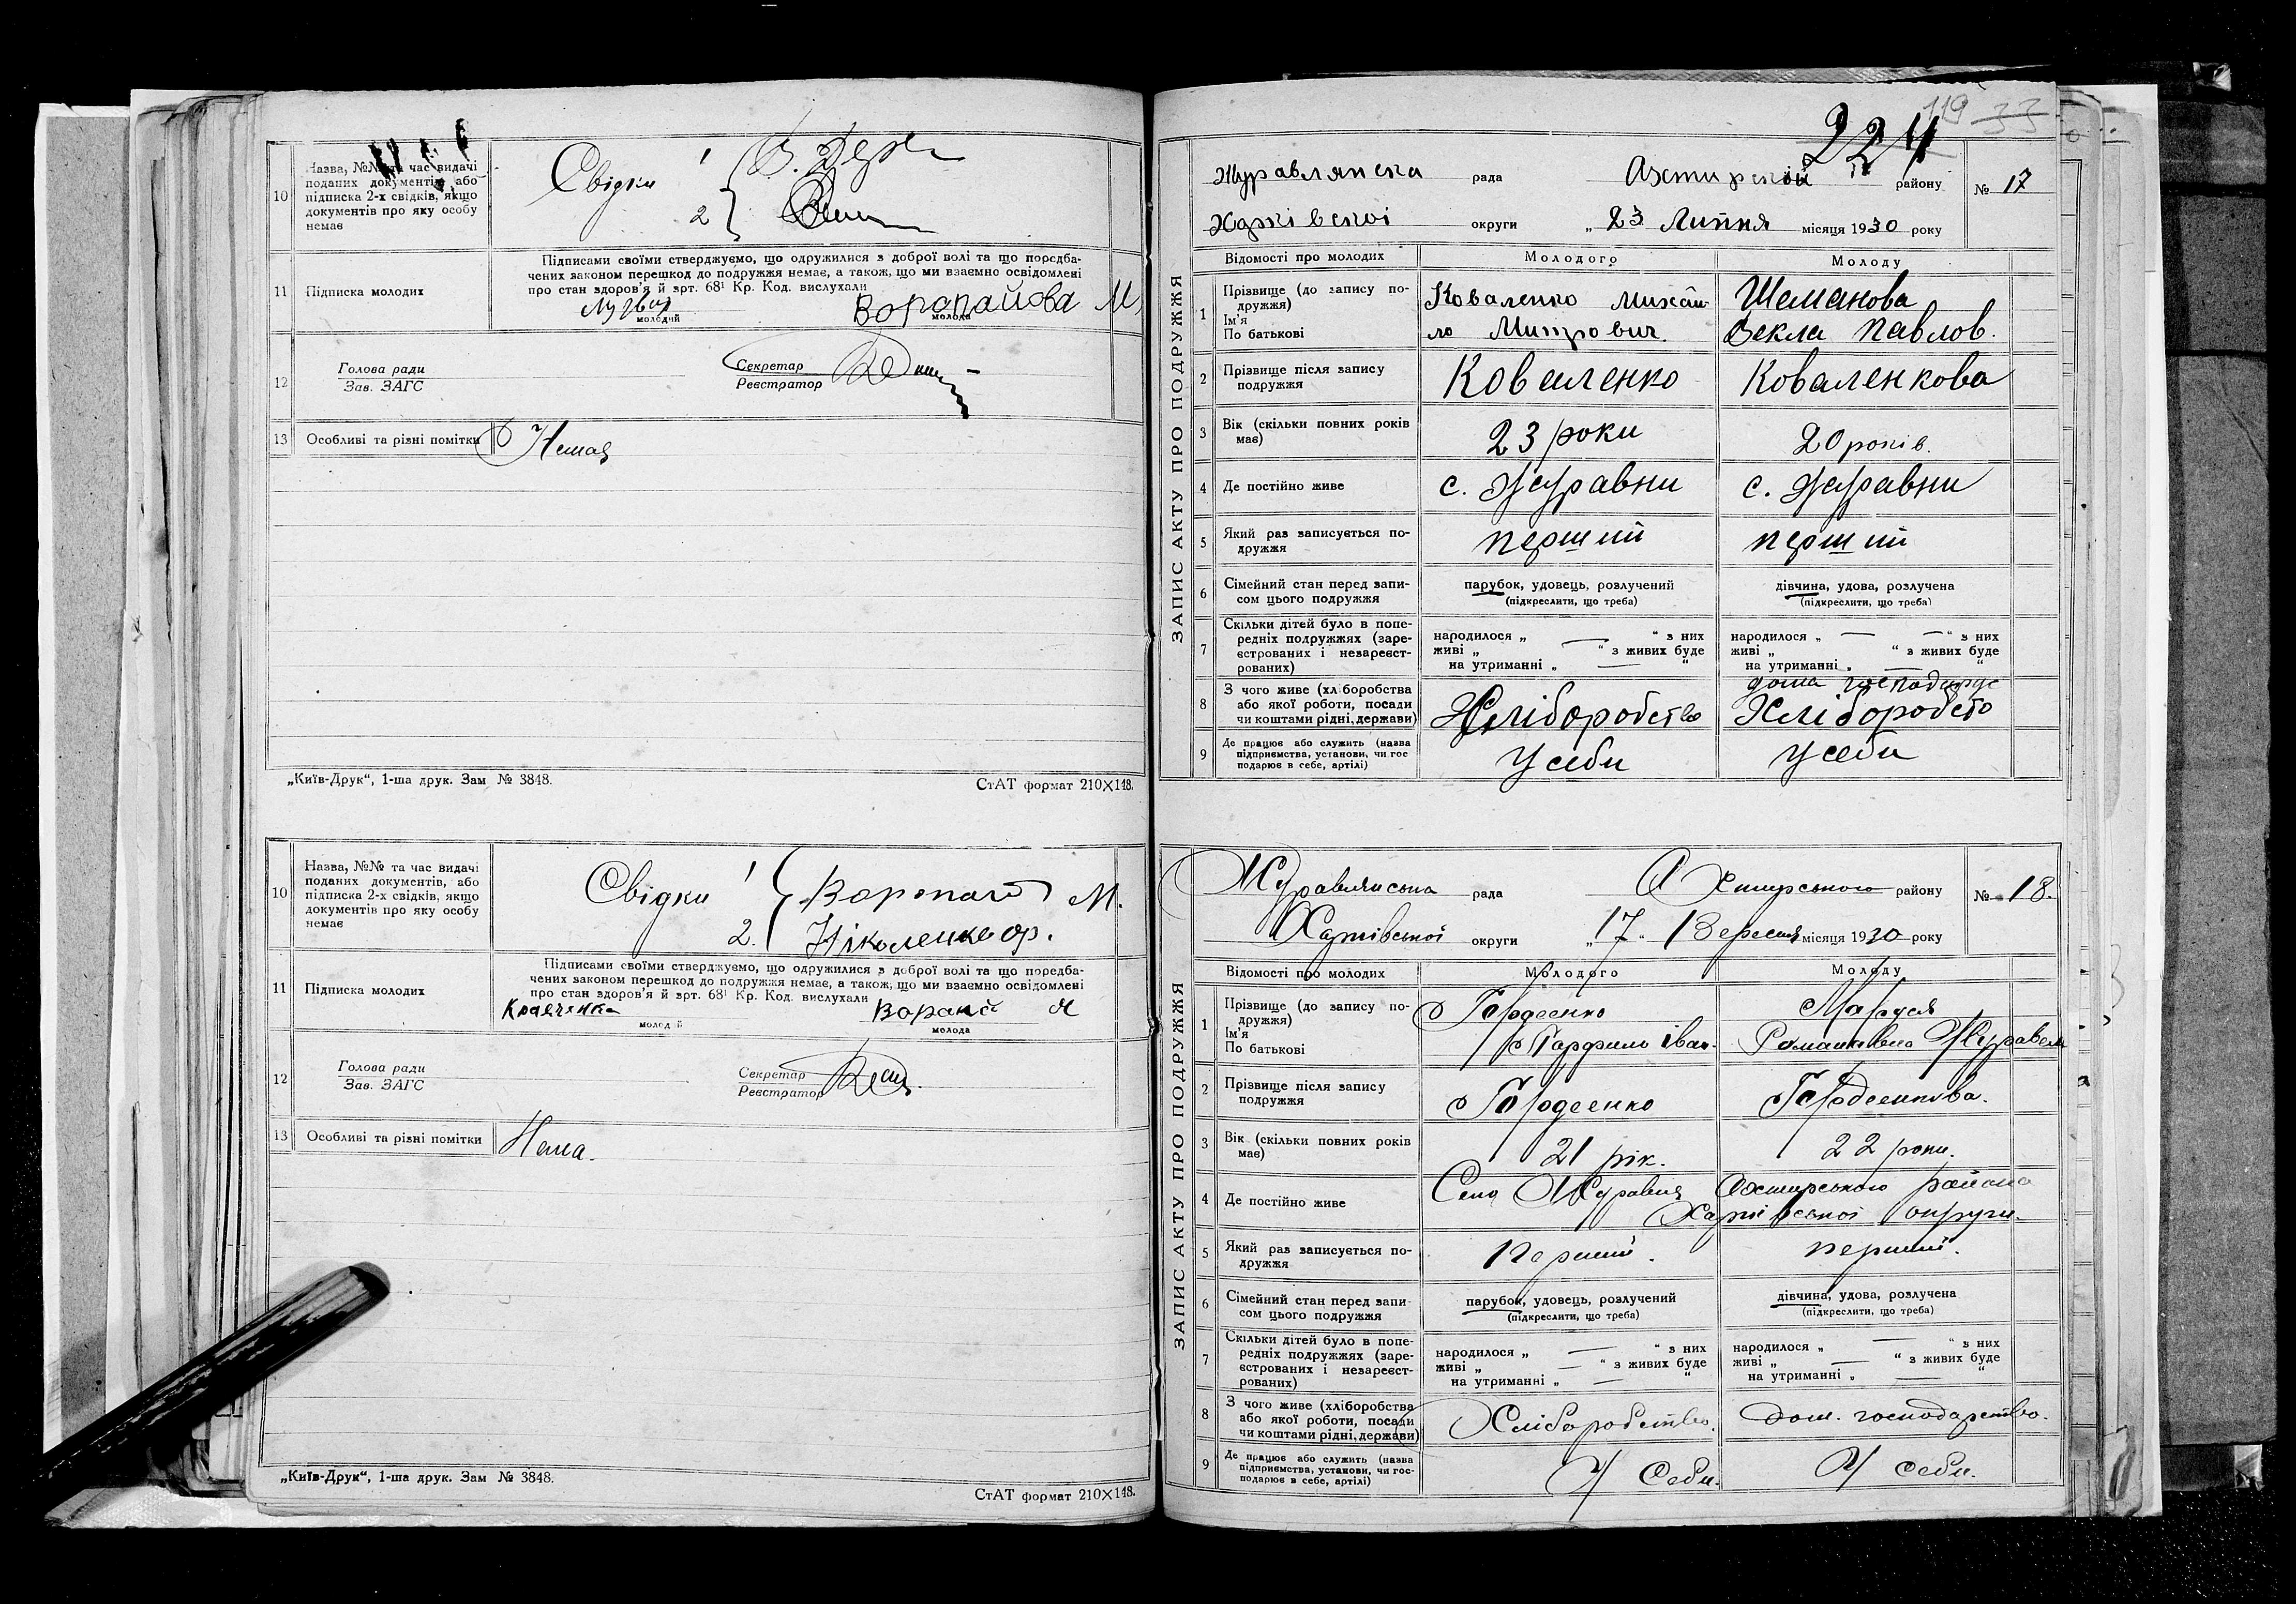 10
Назва, №№ та час видачі
поданих документів, або
підписка 2-х свідків, якщо
документів про яку особу
немає
Свідки 1
2
11
Підписка молодих
Підписами своїми стверджуємо, що одружилися з доброї волі та що передба-
чених законом перешкод до подружжя немає, а також, що ми взаємно освідомлені
про стан здоров'я й арт. 68¹ Кр. Код. вислухали
Воропайова М
молодий
молода
12
Голова ради
Зав. ЗАГС
Секретар
Реєстратор
13
Особливі та різні помітки
Немає
„Київ-Друк“, 1-ша друк. Зам № 3848.
СтАТ формат 210×148.
10
Назва, №№ та час видачі
поданих документів, або
підписка 2-х свідків, якщо
документів про яку особу
немає
Свідки 1 Воропай М.
2. Ніколенко
11
Підписка молодих
Підписами своїми стверджуємо, що одружилися з доброї волі та що передба-
чених законом перешкод до подружжя немає, а також, що ми взаємно освідомлені
про стан здоров'я й арт. 68¹ Кр. Код. вислухали
Кравченко
Ворапай
молодий
молода
12
Голова ради
Зав. ЗАГС
Секретар
Реєстратор
13
Особливі та різні помітки
Нема.
„Київ-Друк“, 1-ша друк. Зам № 3848.
СтАТ формат 210×148.
119 33
224
ЗАПИС АКТУ ПРО ПОДРУЖЖЯ
Журавлянска рада Ахтирской району № 17
Харківської округи „23 Липня місяця 1930 року
Відомості про молодих
Молодого
Молоду
1
Прізвище (до запису по-
дружжя)
Ім'я
По батькові
Коваленко Михай-
ло Митрович.
Шеманова
Векла Павлов.
2
Прізвище після запису
подружжя
Коваленко
Коваленкова
3
Вік (скільки повних років
має)
23 роки
20 років.
4
Де постійно живе
с. Журавни
с. Журавни
5
Який раз записується по-
дружжя
перший
перший
6
Сімейний стан перед запи-
сом цього подружжя
парубок, удовець, розлучений
(підкреслити, що треба)
дівчина, удова, розлучена
(підкреслити, що треба)
7
Скільки дітей було в попе-
редніх подружжях (заре-
єстрованих і незареєст-
рованих)
народилося „ — “ з них
живі „ “ з живих буде
на утриманні „ — “
народилося „ — — “ з них
живі „ “ з живих буде
на утриманні „ — “
8
З чого живе (хліборобства
або якої роботи, посади
чи коштами рідні, держави)
Хліборобство
дома
Хліборобсто
9
Де працює або служить (назва
підприємства, установи, чи гос
подарює в себе, артілі)
У себи
У себи
ЗАПИС АКТУ ПРО ПОДРУЖЖЯ
Журавлянська рада Охтирського району № 18.
Харківської округи „17“ Вересня місяця 1930 року
Відомості про молодих
Молодого
Молоду
1
Прізвище (до запису по-
дружжя)
Ім'я
По батькові
Гордеенко
Парфило Іван.
Маруся
Романівна Журавель
2
Прізвище після запису
подружжя
Гордеенко
Гордеенкова.
3
Вік (скільки повних років
має)
21 рік.
22 роки.
4
Де постійно живе
Село Журавня Охтирського района
Харківської округи.
5
Який раз записується по-
дружжя
Перший.
перший.
6
Сімейний стан перед запи-
сом цього подружжя
парубок, удовець, розлучений
(підкреслити, що треба)
дівчина, удова, розлучена
(підкреслити, що треба)
7
Скільки дітей було в попе-
редніх подружжях (заре-
єстрованих і незареєст-
рованих)
народилося „ — “ з них
живі „ — “ з живих буде
на утриманні „ — “
народилося „ — “ з них
живі „ — “ з живих буде
на утриманні „ — “
8
З чого живе (хліборобства
або якої роботи, посади
чи коштами рідні, держави)
Хліборобство.
Дом. господарство.
9
Де працює або служить (назва
підприємства, установи, чи гос-
подарює в себе, артілі)
У Себи.
У себи.